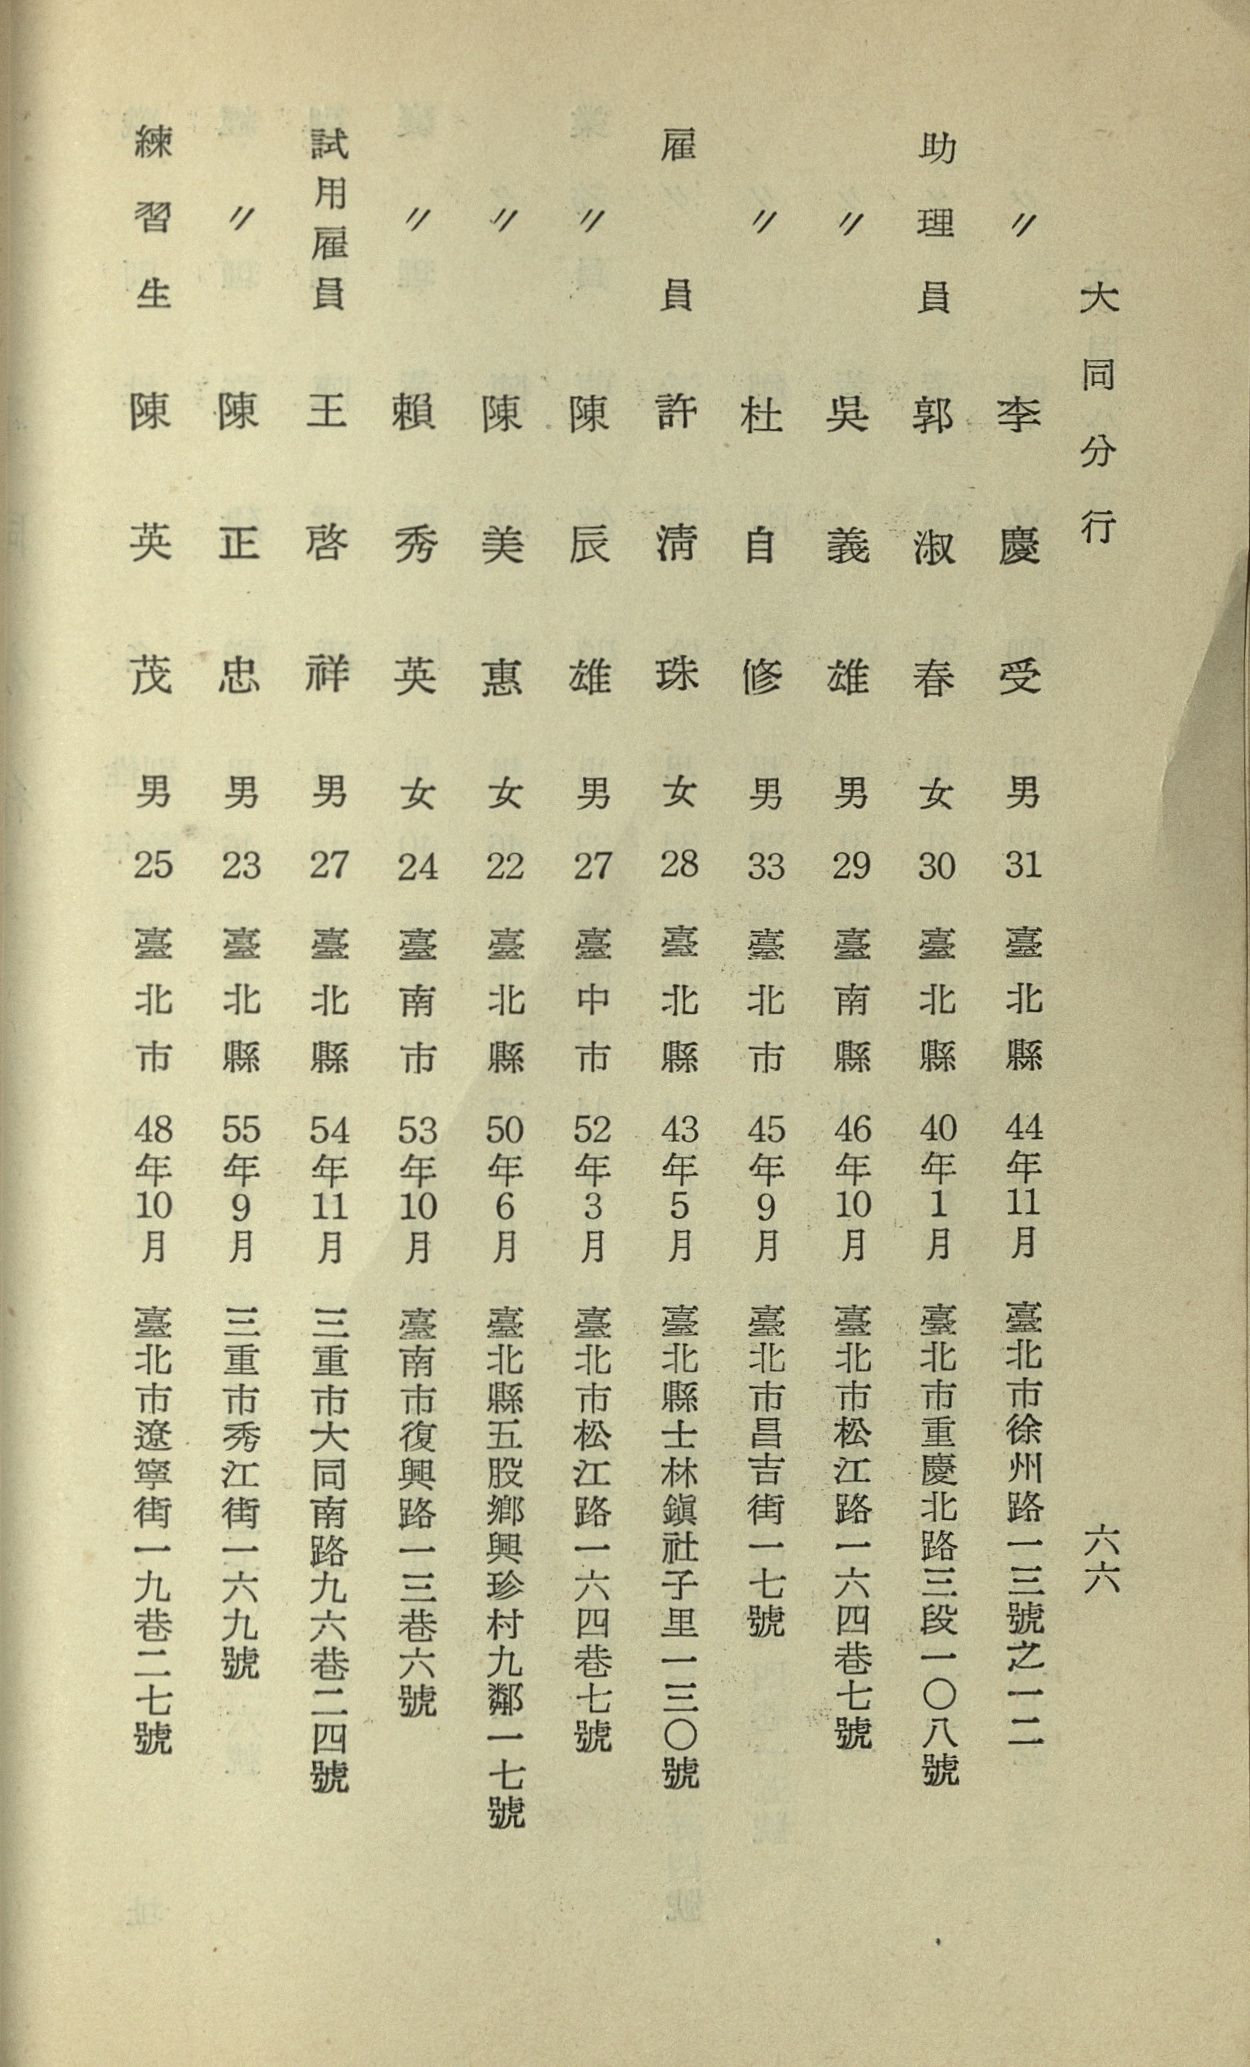 大同分行
六六
〃 李慶受 男 31 臺北縣 44年11月 臺北市徐州路一三號之一二
助理員 郭淑春 女 30 臺北縣 40年1月 臺北市重慶北路三段一〇八號
〃 吳義雄 男 29 臺南縣 46年10月 臺北市松江路一六四巷七號
〃 杜自修 男 33 臺北市 45年9月 臺北市昌吉街一七號
雇員 許淸珠 女 28 臺北縣 43年5月 臺北縣士林鎭社子里一三〇號
〃 陳辰雄 男 27 臺中市 52年3月 臺北市松江路一六四巷七號
〃 陳美惠 女 22 臺北縣 50年6月 臺北縣五股鄉興珍村九鄰一七號
〃 賴秀英 女 24 臺南市 53年10月 臺南市復興路一三巷六號
試用雇員 王啓祥 男 27 臺北縣 54年11月 三重市大同南路九六巷二四號
〃 陳正忠 男 23 臺北縣 55年9月 三重市秀江街一六九號
練習生 陳英茂 男 25 臺北市 48年10月 臺北市遼寧街一九巷二七號